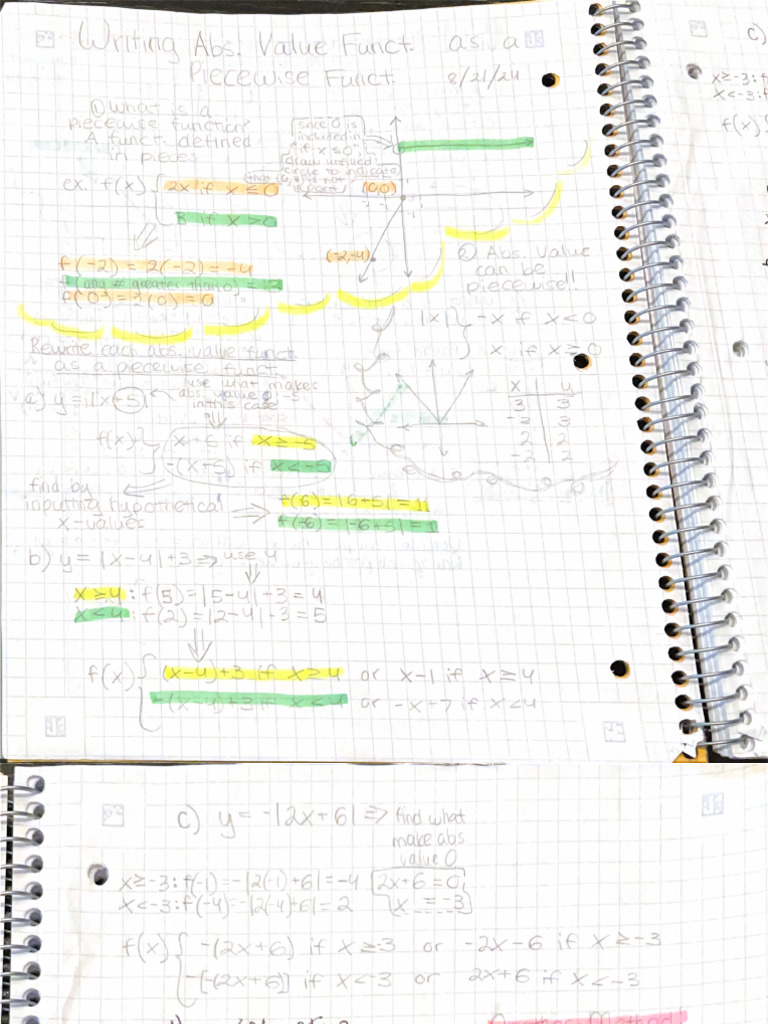 Writing Abs. Value Funct. as a
Piecewise Funct.
8/21/24
① What is a
piecewise function?
A funct. defined
in pieces
ex: f(x) { 2x if x ≤ 0
3 if x > 0
f(-2) = 2(-2) = -4
f(any # greater than 0) = 3
f(0) = 2(0) = 0
since 0 is
included in
"if x ≤ 0",
draw unfilled
circle to indicate
that (0,3) is not
a point
(0,0)
(-2,-4)
② Abs. value
can be
piecewise!!
|x| { -x if x < 0
x if x ≥ 0
x y
3 3
-3 3
2 2
-2 2
Rewrite each abs. value funct.
as a piecewise funct.
a) y = |x+5|
use what makes
abs value 0, -5
in this case
f(x) { x+5 if x ≥ -5
-(x+5) if x < -5
find by
inputing hypothetical
x-values
f(6) = |6+5| = 11
f(-6) = |-6+5| = 1
b) y = |x-4|+3 ⇒ use 4
x ≥ 4: f(5) = |5-4|+3 = 4
x < 4: f(2) = |2-4|+3 = 5
f(x) { (x-4)+3 if x ≥ 4 or x-1 if x ≥ 4
-(x-4)+3 if x < 4 or -x+7 if x < 4
c)
x ≥ -3: f
x < -3: f
f(x) {
c) y = -|2x+6| ⇒ find what
make abs
value 0
2x+6 = 0
x = -3
x ≥ -3: f(-1) = -|2(-1)+6| = -4
x < -3: f(-4) = -|2(-4)+6| = 2
f(x) { -(2x+6) if x ≥ -3 or -2x-6 if x ≥ -3
-[-(2x+6)] if x < -3 or 2x+6 if x < -3
Another Method